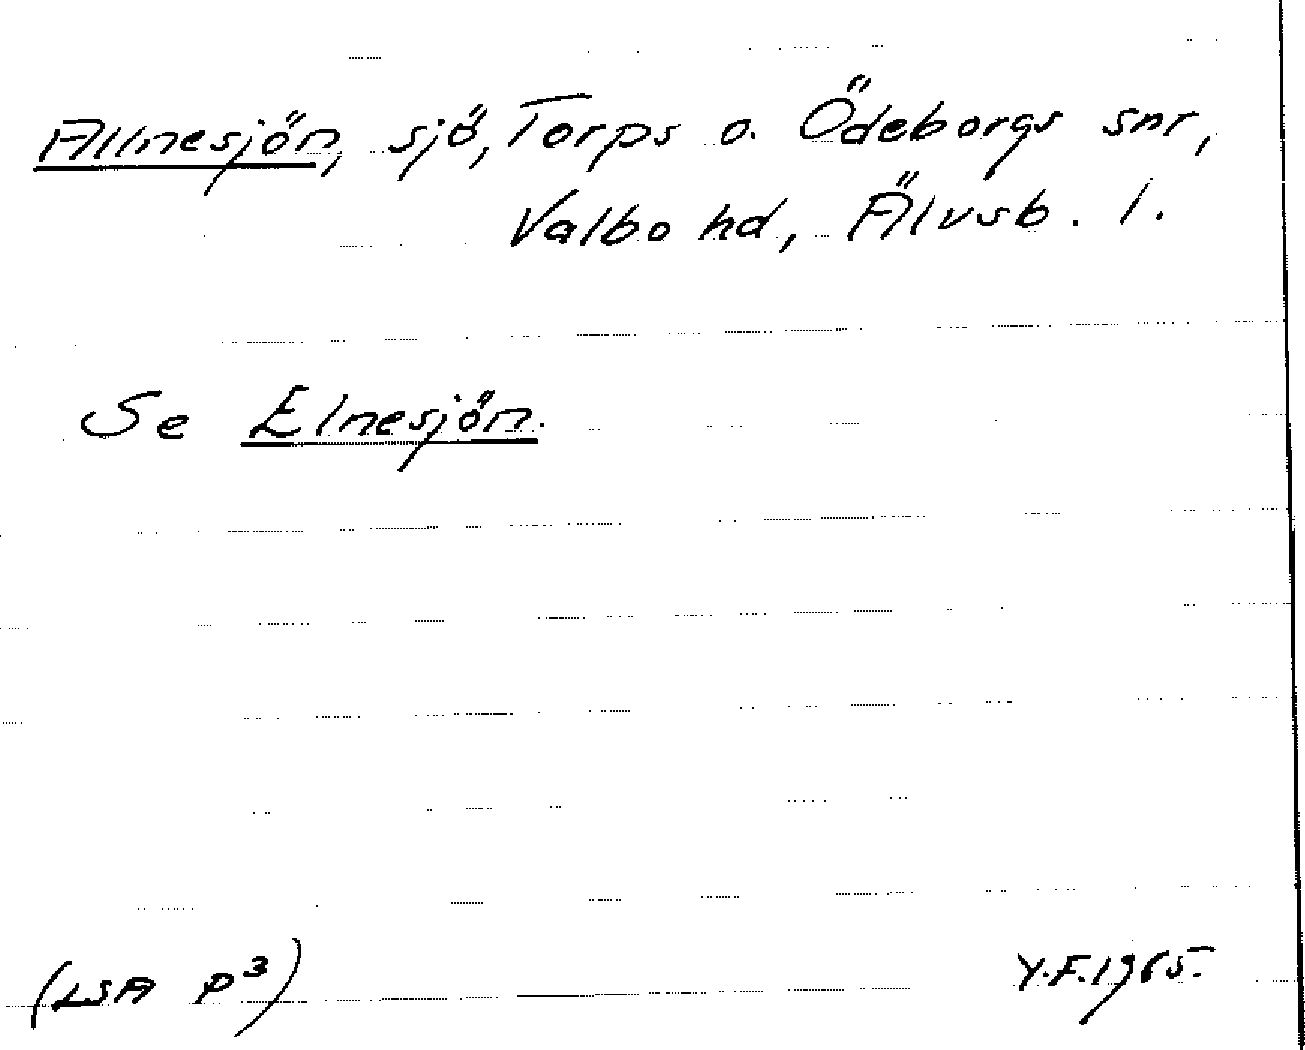 Allnesjön, sjö, Torps o. Ödeborgs snr,
Valbo hd, Älvsb. l.
Se Elnesjön.
(LSA P³)
Y.F. 1965.